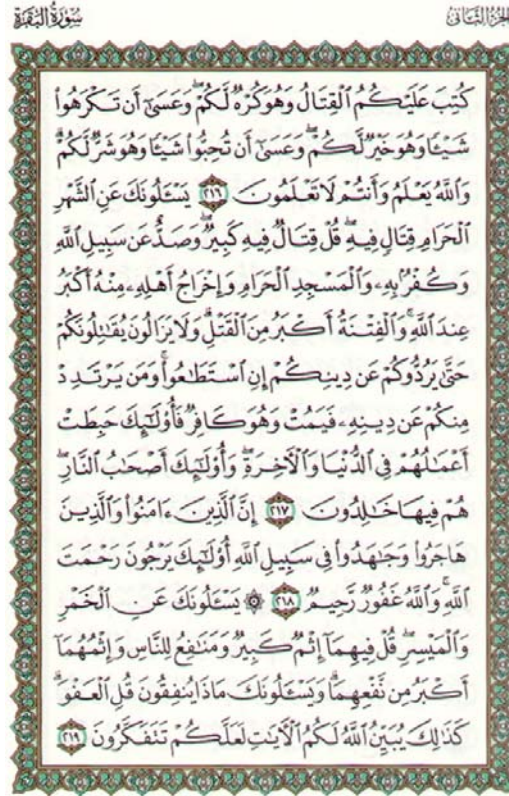 الجزء الثاني
سورة البقرة
كُتِبَ عَلَيْكُمُ ٱلْقِتَالُ وَهُوَ كُرْهٌ لَّكُمْ ۖ وَعَسَىٰٓ أَن تَكْرَهُوا۟
شَيْـًٔا وَهُوَ خَيْرٌ لَّكُمْ ۖ وَعَسَىٰٓ أَن تُحِبُّوا۟ شَيْـًٔا وَهُوَ شَرٌّ لَّكُمْ ۗ
وَٱللَّهُ يَعْلَمُ وَأَنتُمْ لَا تَعْلَمُونَ ٢١٦ يَسْـَٔلُونَكَ عَنِ ٱلشَّهْرِ
ٱلْحَرَامِ قِتَالٍ فِيهِ ۖ قُلْ قِتَالٌ فِيهِ كَبِيرٌ ۖ وَصَدٌّ عَن سَبِيلِ ٱللَّهِ
وَكُفْرٌۢ بِهِۦ وَٱلْمَسْجِدِ ٱلْحَرَامِ وَإِخْرَاجُ أَهْلِهِۦ مِنْهُ أَكْبَرُ
عِندَ ٱللَّهِ ۚ وَٱلْفِتْنَةُ أَكْبَرُ مِنَ ٱلْقَتْلِ ۗ وَلَا يَزَالُونَ يُقَـٰتِلُونَكُمْ
حَتَّىٰ يَرُدُّوكُمْ عَن دِينِكُمْ إِنِ ٱسْتَطَـٰعُوا۟ ۚ وَمَن يَرْتَدِدْ
مِنكُمْ عَن دِينِهِۦ فَيَمُتْ وَهُوَ كَافِرٌ فَأُو۟لَـٰٓئِكَ حَبِطَتْ
أَعْمَـٰلُهُمْ فِى ٱلدُّنْيَا وَٱلْـَٔاخِرَةِ ۖ وَأُو۟لَـٰٓئِكَ أَصْحَـٰبُ ٱلنَّارِ ۖ
هُمْ فِيهَا خَـٰلِدُونَ ٢١٧ إِنَّ ٱلَّذِينَ ءَامَنُوا۟ وَٱلَّذِينَ
هَاجَرُوا۟ وَجَـٰهَدُوا۟ فِى سَبِيلِ ٱللَّهِ أُو۟لَـٰٓئِكَ يَرْجُونَ رَحْمَتَ
ٱللَّهِ ۚ وَٱللَّهُ غَفُورٌ رَّحِيمٌ ٢١٨ ۞ يَسْـَٔلُونَكَ عَنِ ٱلْخَمْرِ
وَٱلْمَيْسِرِ ۖ قُلْ فِيهِمَآ إِثْمٌ كَبِيرٌ وَمَنَـٰفِعُ لِلنَّاسِ وَإِثْمُهُمَآ
أَكْبَرُ مِن نَّفْعِهِمَا ۗ وَيَسْـَٔلُونَكَ مَاذَا يُنفِقُونَ قُلِ ٱلْعَفْوَ ۗ
كَذَٰلِكَ يُبَيِّنُ ٱللَّهُ لَكُمُ ٱلْـَٔايَـٰتِ لَعَلَّكُمْ تَتَفَكَّرُونَ ٢١٩